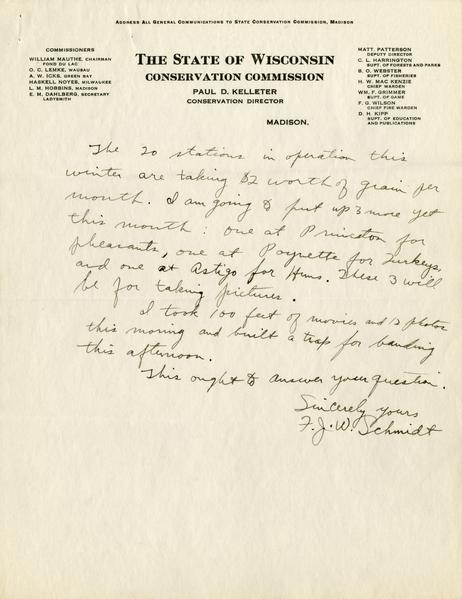 Address All General Communications to State Conservation Commission, Madison
COMMISSIONERS
WILLIAM MAUTHE, CHAIRMAN
FOND DU LAC
O. C. LEMKE, WAUSAU
A. W. ICKS, GREEN BAY
HASKELL NOYES, MILWAUKEE
L. M. HOBBINS, MADISON
E. M. DAHLBERG, SECRETARY
LADYSMITH
THE STATE OF WISCONSIN
CONSERVATION COMMISSION
PAUL D. KELLETER
CONSERVATION DIRECTOR
MADISON,
MATT. PATTERSON
DEPUTY DIRECTOR
C. L. HARRINGTON
SUPT. OF FORESTS AND PARKS
B. O. WEBSTER
SUPT. OF FISHERIES
H. W. MAC KENZIE
CHIEF WARDEN
WM. F. GRIMMER
SUPT. OF GAME
F. G. WILSON
CHIEF FIRE WARDEN
D. H. KIPP
SUPT. OF EDUCATION
AND PUBLICATIONS
The 20 stations in operation this
winter are taking $2 worth of grain per
month. I am going to put up 3 more yet
this month: one at Princeton for
pheasants, one at Poynette for Turkeys,
and one at Astigo for Huns. These 3 will
be for taking pictures.
I took 100 feet of movies and photos
this moring and built a trap for banding
this afternoon.
This ought to answer your question.
Sincerely yours
F. J. W. Schmidt